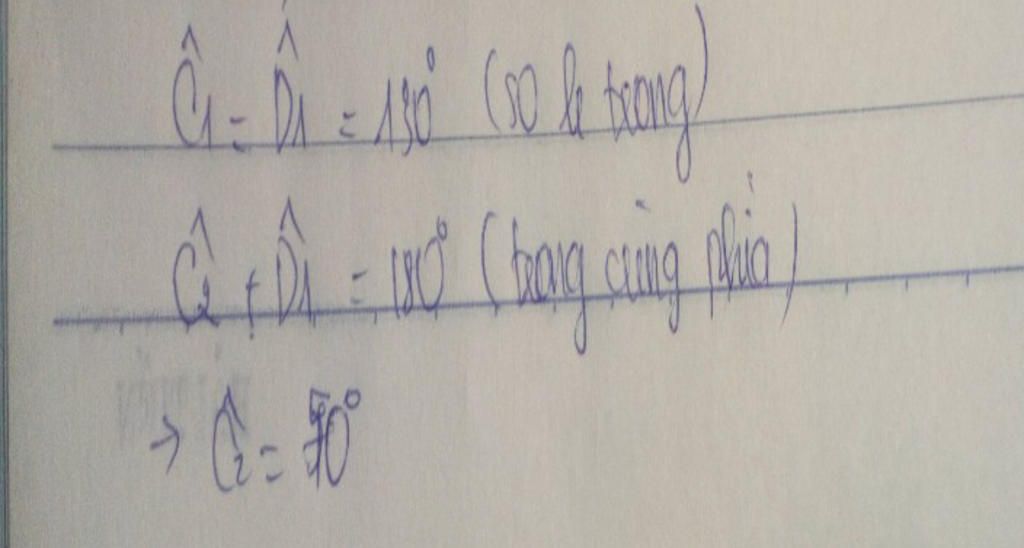 Ĉ1 = D̂1 = 130° (so le trong)
Ĉ2 + D̂1 = 180° (trong cùng phía)
→ Ĉ2 = 50°